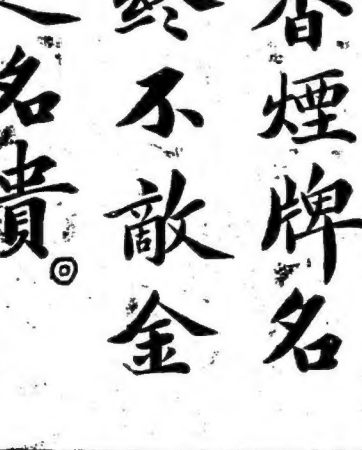 香煙牌名
終不敵金
之名貴◎